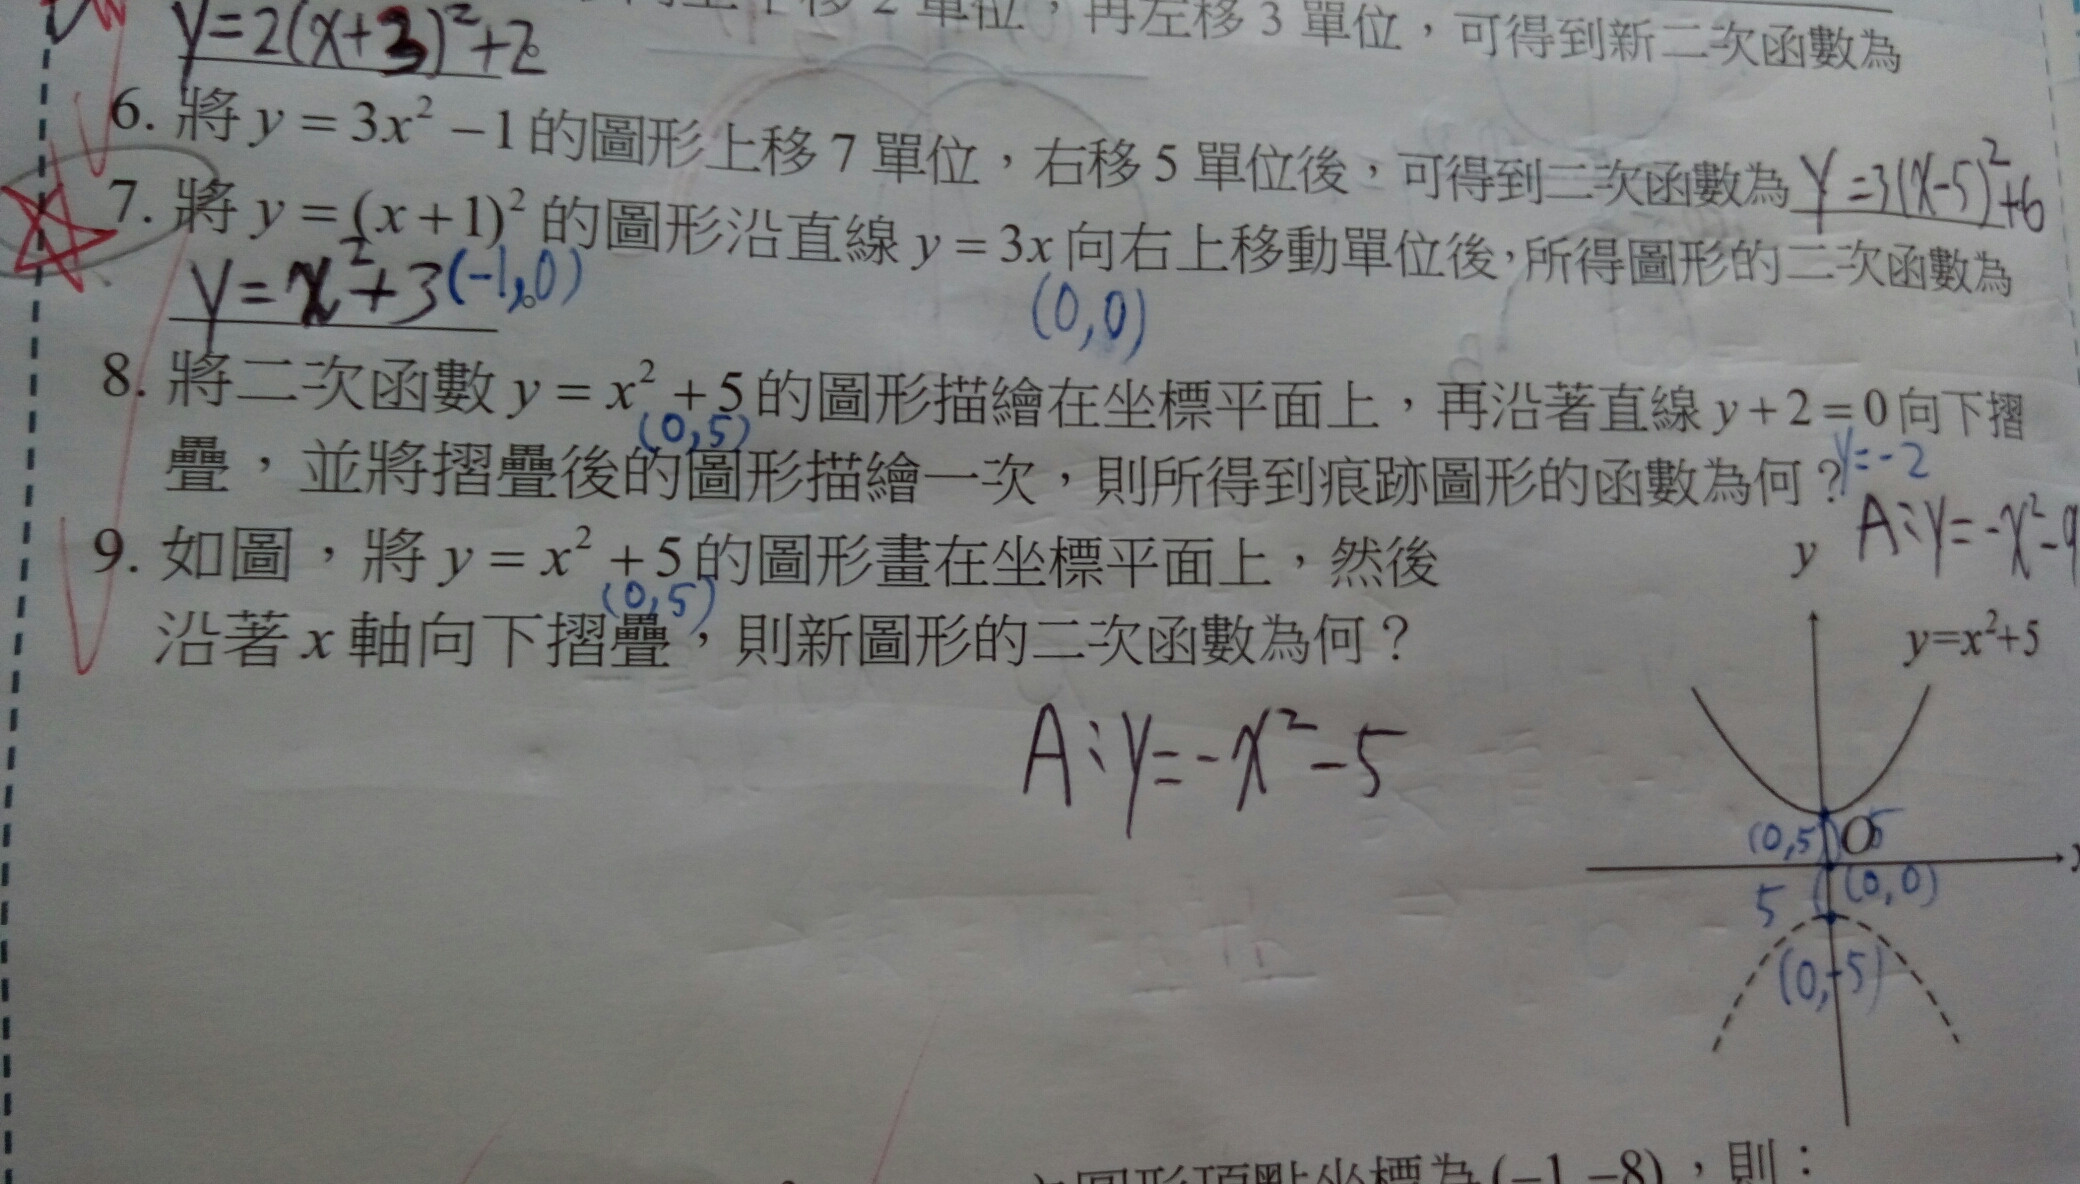 移 2 單位，再左移 3 單位，可得到新二次函數為
y=2(x+3)²+2。
6. 將 y = 3x² −1 的圖形上移 7 單位，右移 5 單位後，可得到二次函數為 y=3(x-5)²+6
7. 將 y = (x+1)² 的圖形沿直線 y = 3x 向右上移動單位後，所得圖形的二次函數為
y=x²+3 。
(-1,0)
(0,0)
8. 將二次函數 y = x² +5 的圖形描繪在坐標平面上，再沿著直線 y + 2 = 0 向下摺
(0,5)
y=-2
疊，並將摺疊後的圖形描繪一次，則所得到痕跡圖形的函數為何？
A:y=-x²-9
9. 如圖，將 y = x² +5 的圖形畫在坐標平面上，然後
(0,5)
沿著 x 軸向下摺疊，則新圖形的二次函數為何？
A:y=-x²-5
y
y=x²+5
(0,5) O 5
x
5 (0,0)
(0,-5)
圖形頂點坐標為 (−1,−8)，則：